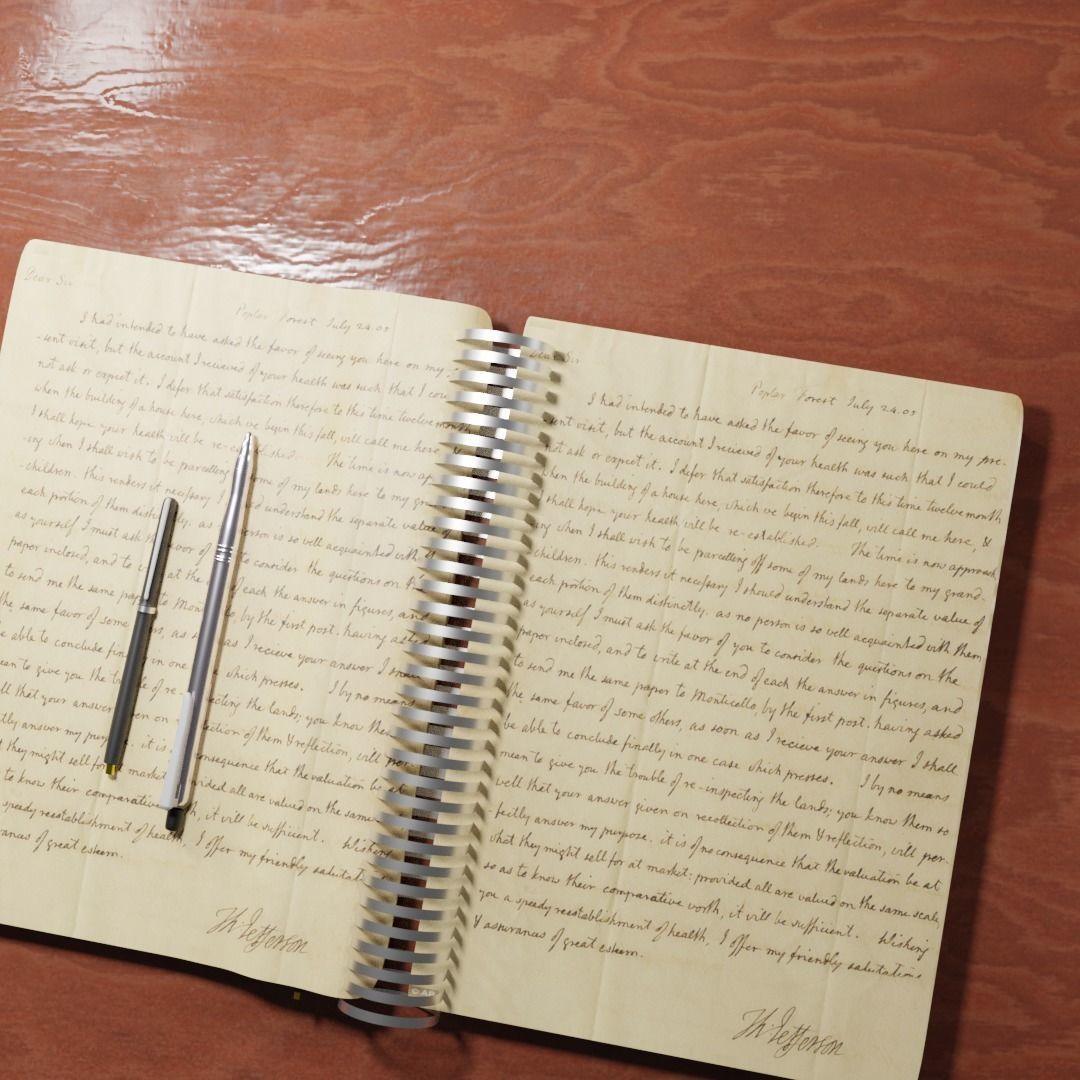 Dear Sir
Poplar Forest July 24.05
I had intended to have asked the favor of seeing you here on my
-sent visit, but the account I recieved of your health was such that I cou
not ask or expect it. I defer that satisfaction therefore to this time twelve month
when the building of a house here, which we begin this fall, will call me here
I shall hope your health will be re-established. The time is now ap
-ing when I shall wish to be parcelling some of my lands here to my gra
-children. this renders it necessary I understand the separate value
each portion of them distinctly. as person is so well acquainted with
as yourself I must ask favor of to consider the questions on
paper inclosed, and to at the of each the answer in figures, and
to send me the same paper to Mon by the first post. having asked
the same favor of some ers, as as I recieve your answer I
able to conclude in one which presses. I by no means
to give you the of re ecting the lands; you know
that your answer en on lection of them & reflection, will
answer my it is onsequence that the valuation be at
they might sell for market vided all are valued on the same
to know their comparative h, it will be sufficient. Wishing
speedy reestablishment of health, I offer my friendly salutati
of great esteem.
Th. Jefferson
Dear Sir
Poplar Forest July 24.05
I had intended to have asked the favor of seeing you here on my pre-
sent visit, but the account I recieved of your health was such that I could
not ask or expect it. I defer that satisfaction therefore to this time twelve month
when the building of a house here, which we begin this fall, will call me here, &
shall hope your health will be re-established. The time is now approach
ing when I shall wish to be parcelling off some of my lands here to my grand-
children. this renders it necessary I should understand the separate value of
each portion of them distinctly. as no person is so well acquainted with them
as yourself I must ask the favor of you to consider the questions on the
paper inclosed, and to write at the end of each the answer in figures, and
to send me the same paper to Monticello, by the first post. having asked
the same favor of some others, as soon as I recieve your answer I shall
be able to conclude finally in one case which presses. I by no means
mean to give you the trouble of re-inspecting the lands; you know them so
well that your answer given on recollection of them & reflection, will per-
fectly answer my purpose. it is of no consequence that the valuation be at
what they might sell for at market: provided all are valued on the same scale,
so as to know their comparative worth, it will be sufficient. Wishing
you a speedy reestablishment of health, I offer my friendly salutations
& assurances of great esteem.
Th. Jefferson